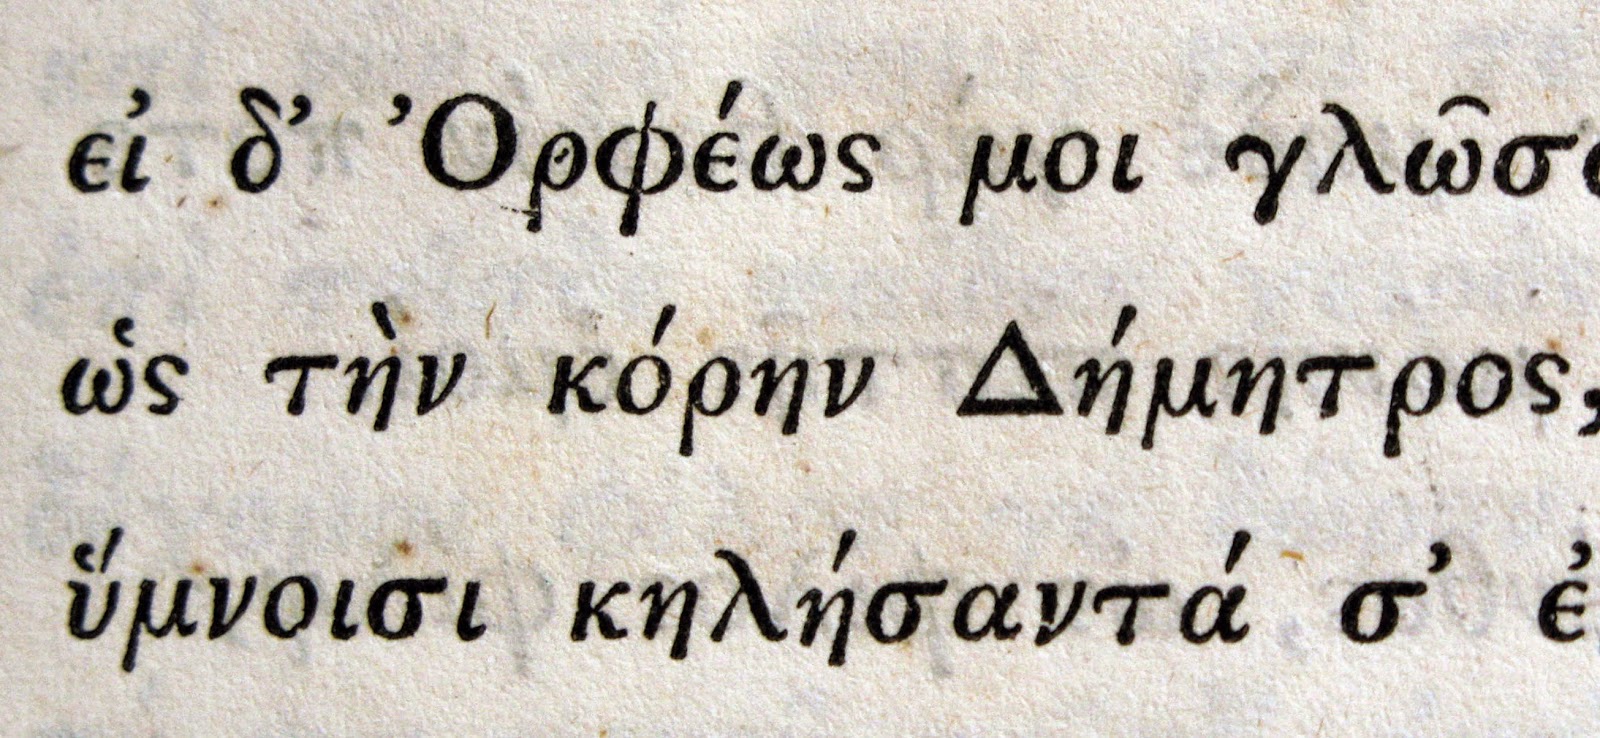 εἰ δ’ Ὀρφέως μοι γλῶσσ
ὡς τὴν κόρην Δήμητρος,
ὕμνοισι κηλήσαντά σ’ ἐ